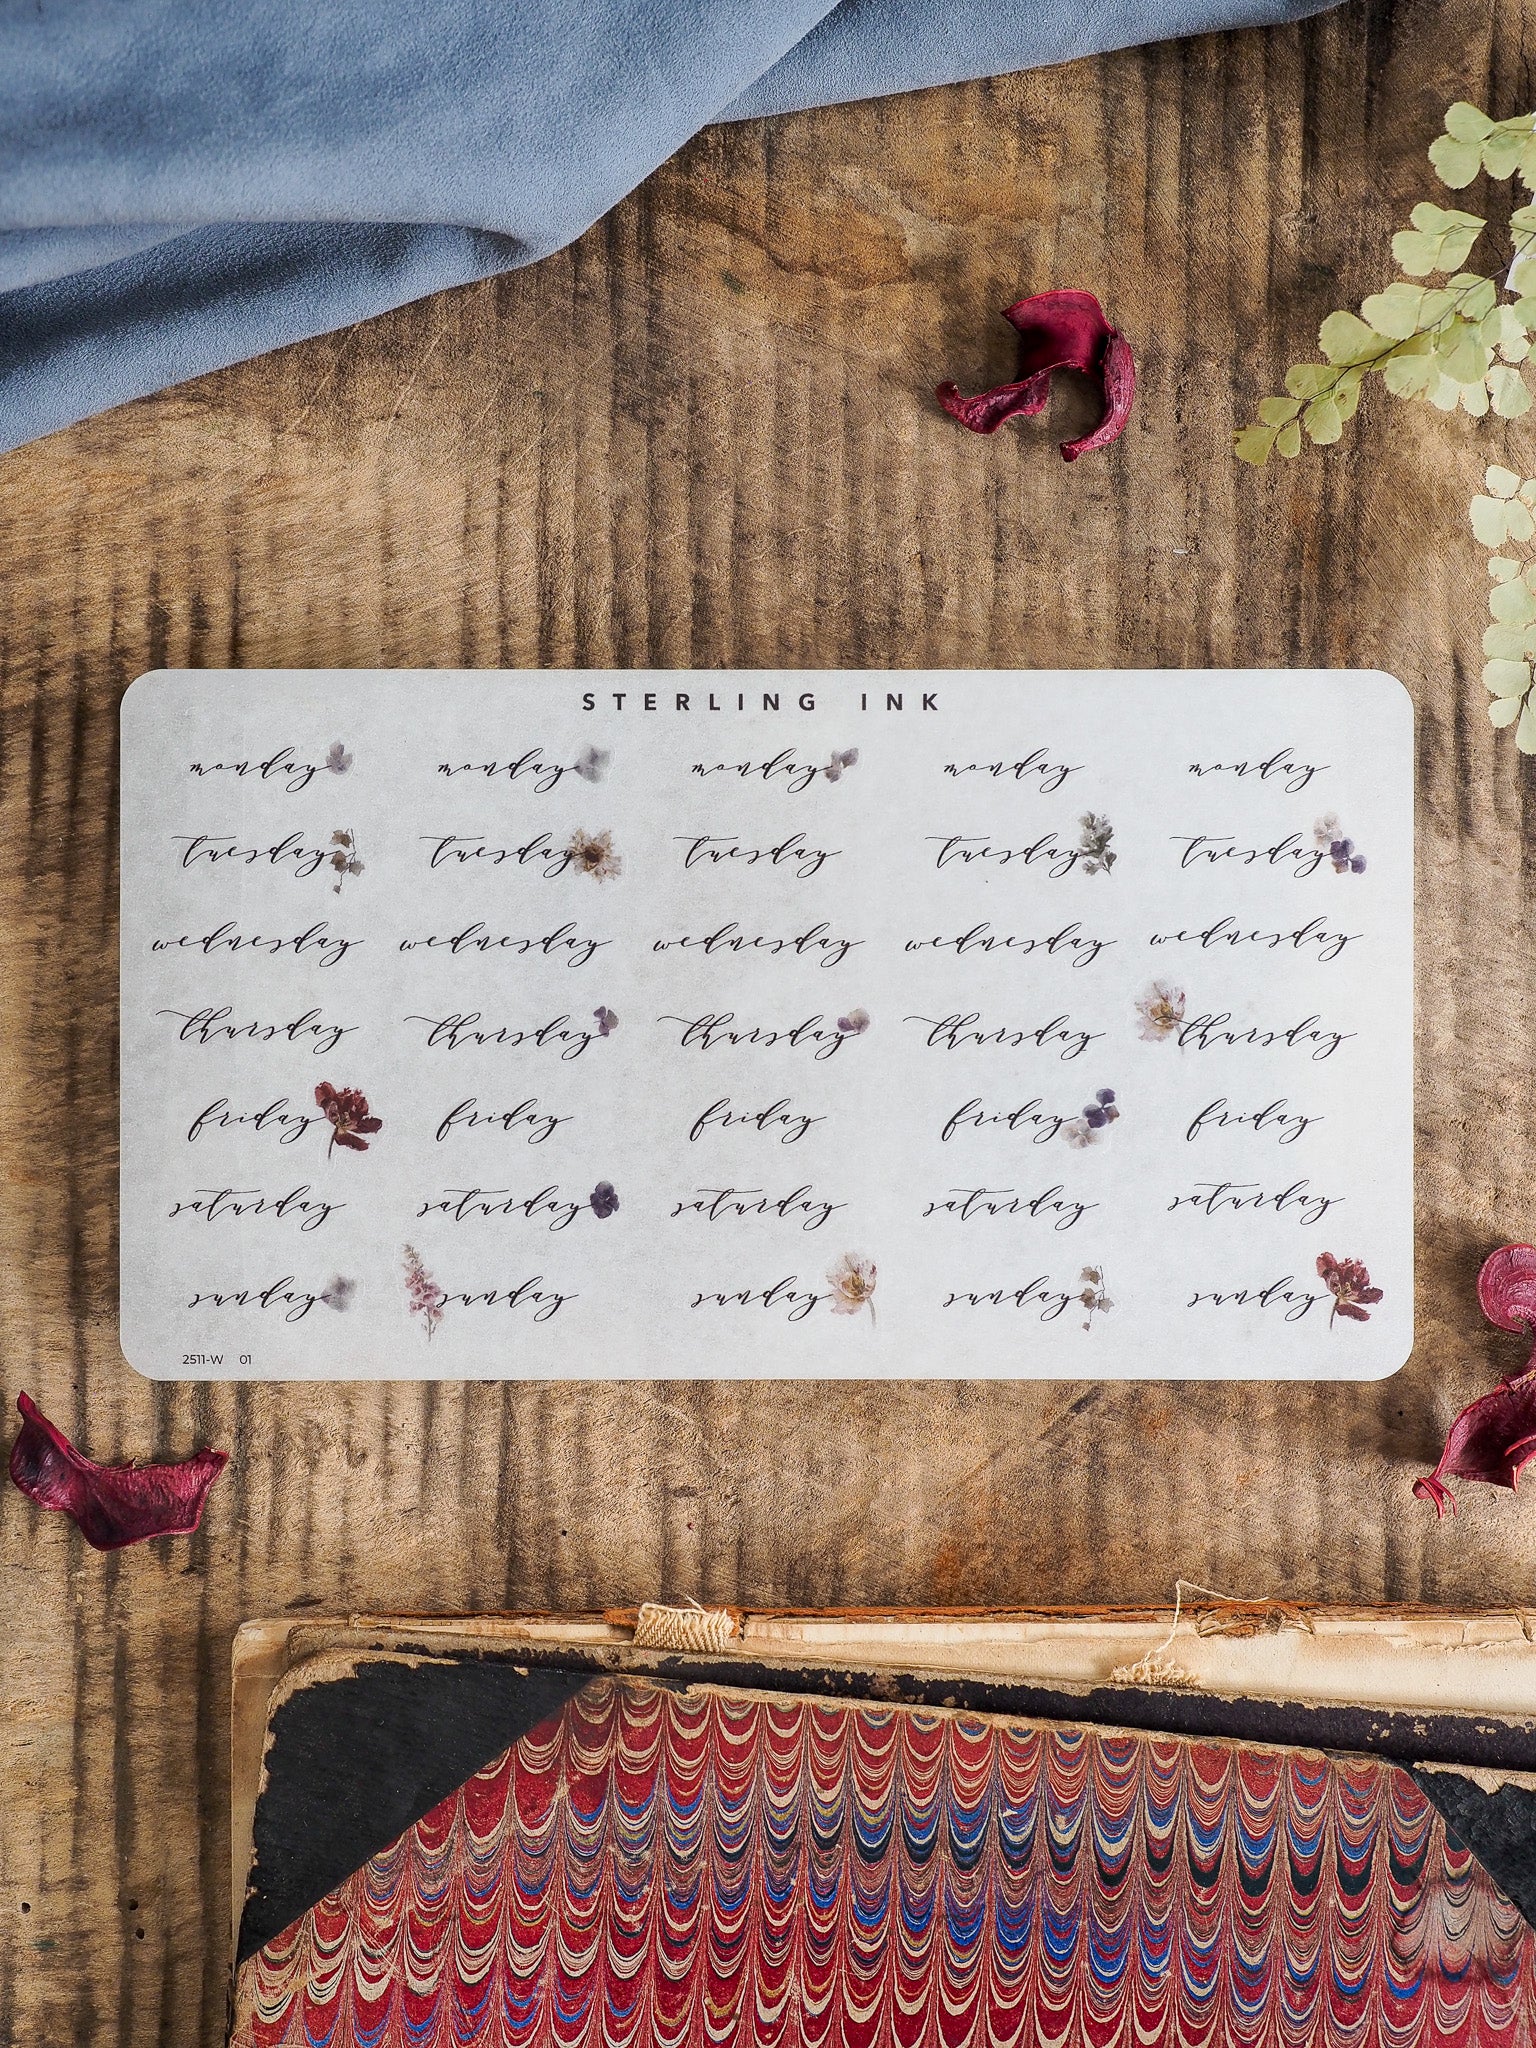 STERLING INK
monday monday monday monday monday
tuesday tuesday tuesday tuesday tuesday
wednesday wednesday wednesday wednesday wednesday
thursday thursday thursday thursday thursday
friday friday friday friday friday
saturday saturday saturday saturday saturday
sunday sunday sunday sunday sunday
2511-W 01